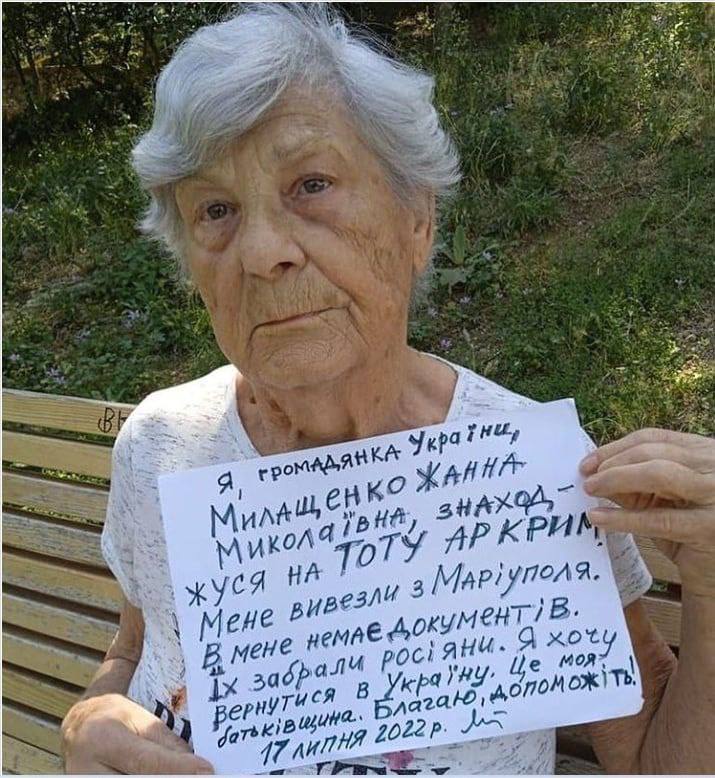 Я, громадянка України,
Милащенко Жанна
Миколаївна, знаход-
жуся на ТОТУ АР КРИМ!
Мене вивезли з Маріуполя.
В мене немає документів.
Їх забрали росіяни. Я хочу
вернутися в Україну. Це моя
батьківщина. Благаю, допоможіть!
17 липня 2022 р.